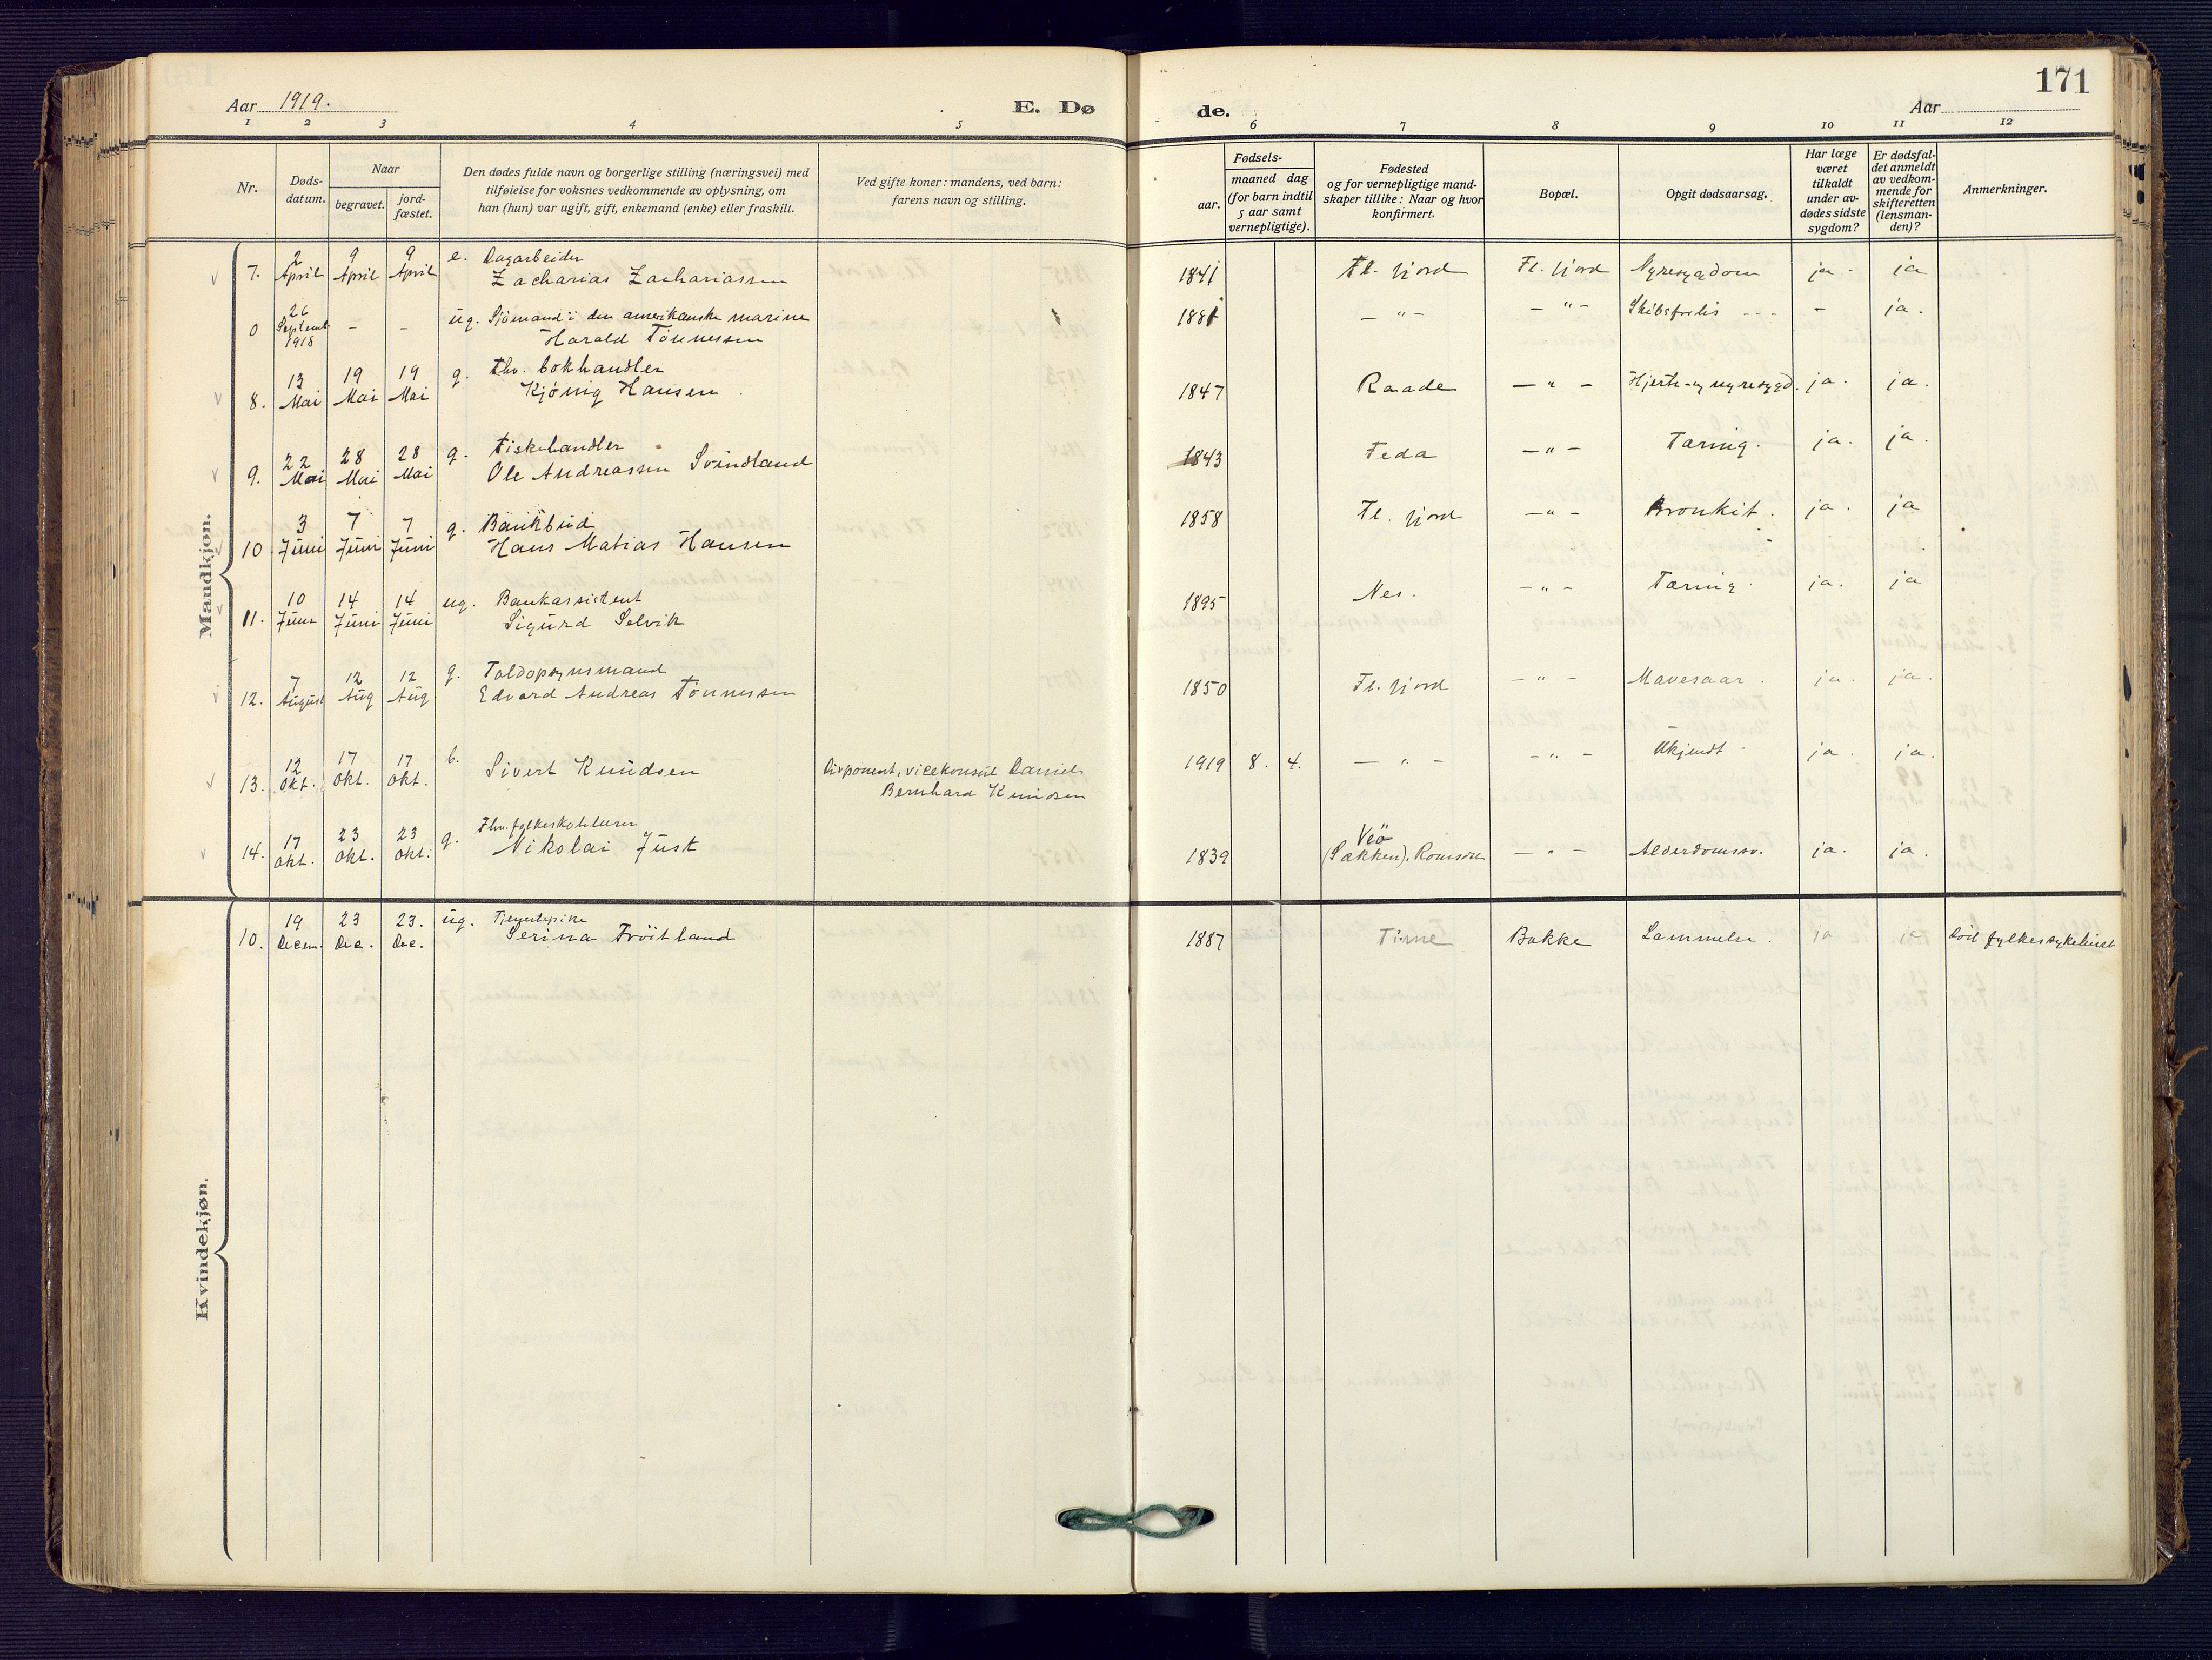 171
Aar 1919.
E. Dø
de.
Aar
1 2 3 4 5 6 7 8 9 10 11 12
Nr.
Døds-
datum.
Naar
begravet.
jord-
fæstet.
Den dødes fulde navn og borgerlige stilling (næringsvei) med
tilføielse for voksnes vedkommende av oplysning, om
han (hun) var ugift, gift, enkemand (enke) eller fraskilt.
Ved gifte koner: mandens, ved barn:
farens navn og stilling.
Fødsels-
aar.
maaned dag
(for barn indtil
5 aar samt
vernepligtige).
Fødested
og for vernepligtige mand-
skaper tillike: Naar og hvor
konfirmert.
Bopæl.
Opgit dødsaarsag.
Har læge
været
tilkaldt
under av-
dødes sidste
sygdom?
Er dødsfal-
det anmeldt
av vedkom-
mende for
skifteretten
(lensman-
den)?
Anmerkninger.
Mandkjøn.
7. 2 April 9 April 9 April e. Dagarbeider
Zacharias Zachariassen 1841 Fl. fjord Fl. fjord Nyresygdom ja. ja
0 26 Septemb 1918 – – ug. Sjömand i den amerikanske marine
Harald Tönnessen 1881 – " – – " – Skibsforlis - - - – ja.
8. 13 Mai 19 Mai 19 Mai g. Fhv. bokhandler
Kjönig Hansen. 1847 Raade – " – Hjerte- og nyresygd. ja. ja.
9. 22 Mai 28 Mai 28 Mai g. Fiskehandler
Ole Andreassen Svindland 1843 Feda – " – Tæring. ja. ja.
10 3 Juni 7 Juni 7 Juni g. Bankbud
Hans Matias Hansen 1858 Fl. fjord – " – Bronkit. ja. ja
11. 10 Juni 14 Juni 14 Juni ug. Bankassistent
Sigurd Selvik 1895 Nes. – " – Tæring. ja. ja
12. 7 August 12 Aug 12 Aug. g. Toldopsynsmand
Edvard Andreas Tönnessen 1850 Fl. fjord – " – Mavesaar. ja. ja.
13. 12 Okt. 17 Okt. 17 Okt. b. Sivert Knudsen Disponent, vicekonsul Daniel
Bernhard Knudsen 1919 8. 4. – " – – " – Ukjendt - ja. ja.
14. 17 Okt. 23 Okt. 23 Okt. g. Fhv. folkeskolelærer
Nikolai Just 1839 Veö
(Sækken), Romsdal – " – Alderdomssv. ja. ja.
Kvindekjøn.
10. 19 Decem. 23 Dec. 23. Dec. ug. Tjenestepike
Serina Tröitland 1887 Time Bakke Lammelse. ja ja Död fylkessykehuset